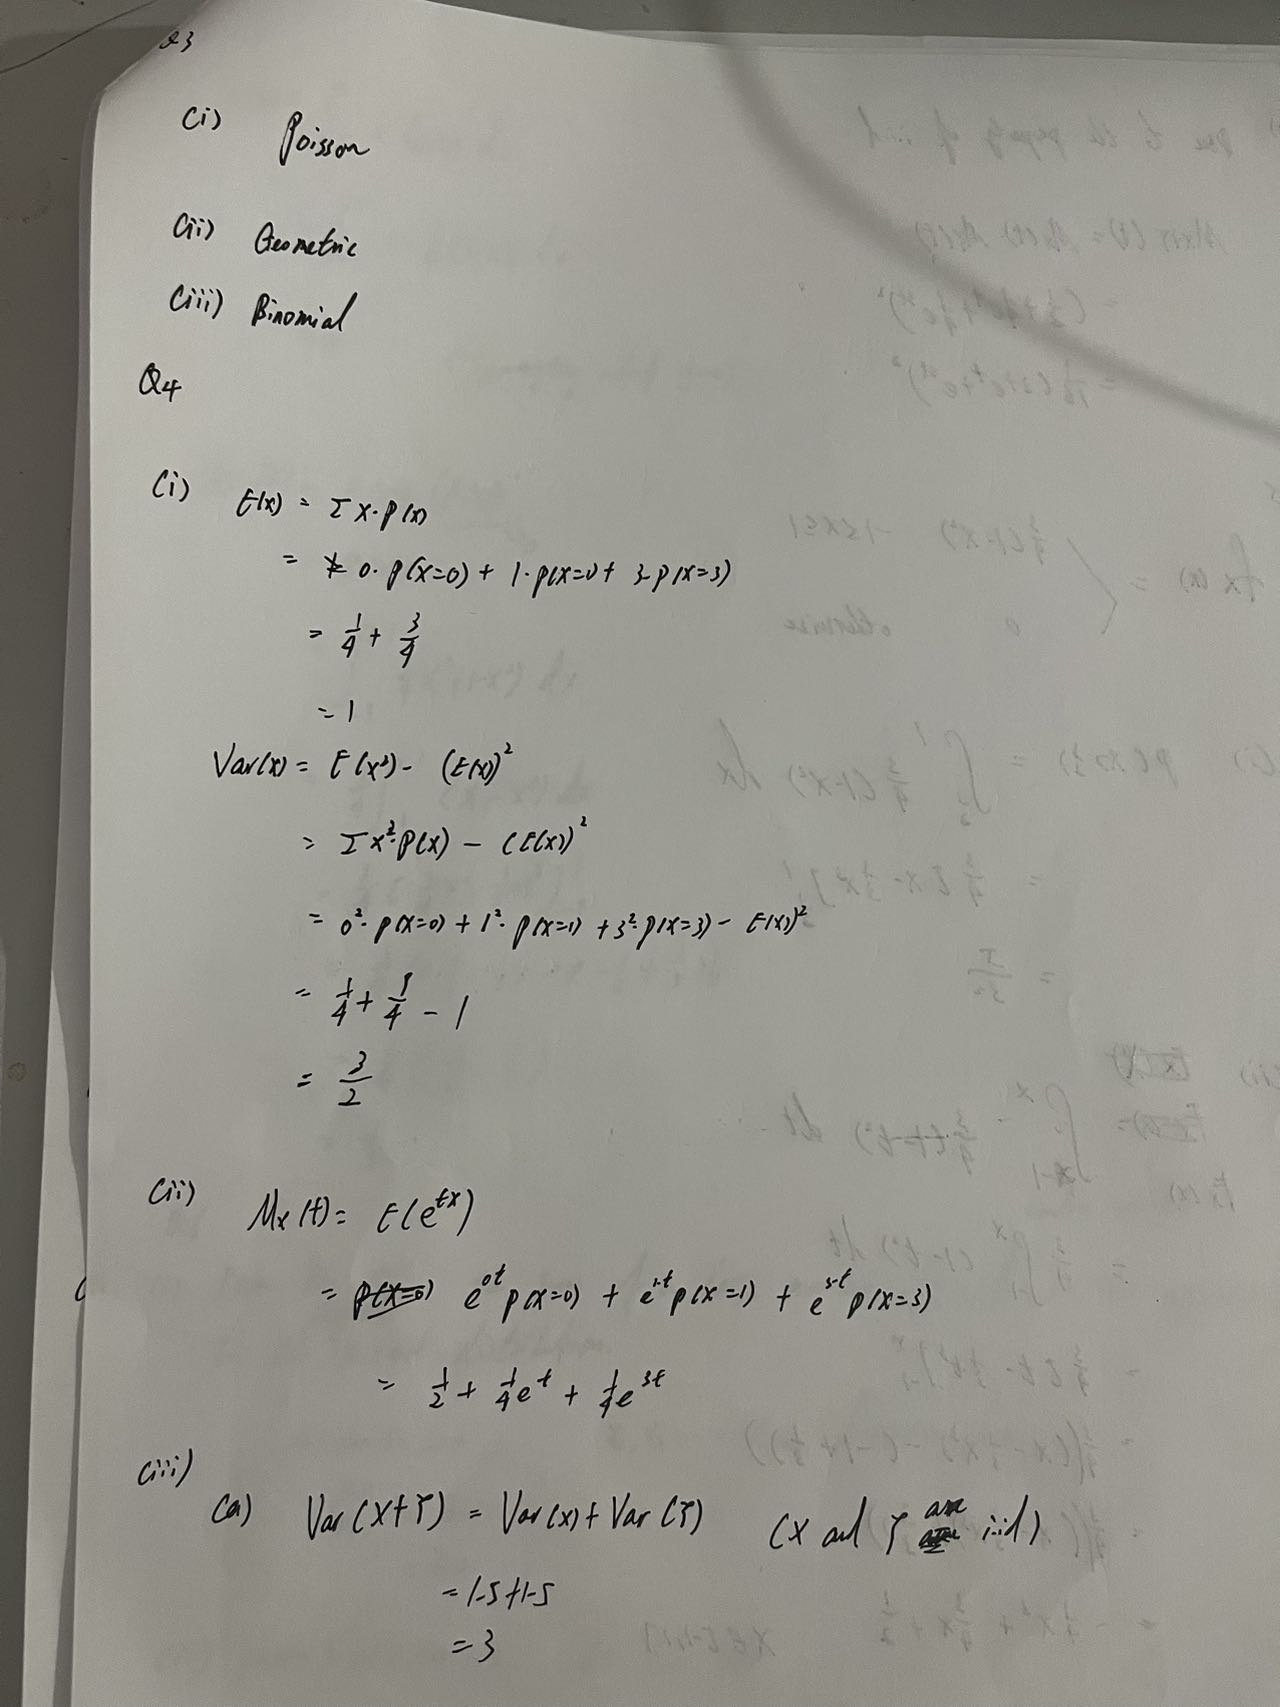 Q3
(i) Poisson
(ii) Geometric
(iii) Binomial
Q4
(i) E(x) = Σ x·p(x)
= 0·p(X=0) + 1·p(X=1) + 3·p(X=3)
= 1/4 + 3/4
= 1
Var(x) = E(x²) - (E(x))²
= Σx²·p(x) - (E(x))²
= 0²·p(X=0) + 1²·p(X=1) + 3²·p(X=3) - E(x))²
= 1/4 + 9/4 - 1
= 3/2
(ii) Mx(t) = E(e^{tx})
= p(X=0) e^{0t} p(X=0) + e^{1·t} p(X=1) + e^{3·t} p(X=3)
= 1/2 + 1/4 e^t + 1/4 e^{3t}
(iii)
(a) Var(X+Y) = Var(x) + Var(Y) (X and Y are iid)
= 1.5+1.5
= 3